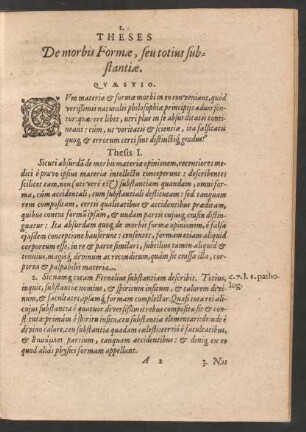 1.
THESES
De morbis Formæ, seu totius sub-
stantiæ.
QVÆSTIO.
CVm materiæ & formæ morbi in eo conveniant, quòd
verissimis naturalis philosophiæ principijs adversen-
tur: quærere libet, utri plus in se absurditatis conti-
neant: cùm, ut veritatis & scientiæ, ita falsitatis
quoq; & errorum certi sint distinctiq; gradus?
Thesis I.
Sicuti absurdã de morbis materiæ opinionem, recentiores me-
dici è pravo ipsius materiæ intellectu conceperunt: describentes
scilicet eam, non (uti verè est) substantiam quandam, omni for-
ma, cùm accidentali, cum substantiali destitutam: sed tanquam
rem compositam, certis qualitatibus & accidentibus præditam,
quibus contra formã ipsam, & nudam partis cujusq; crasin distin-
guatur: Ita absurdam quoq; de morbis formæ opinionem, è falsa
ejusdem conceptione hauserunt: censentes, formam etiam aliquid
corporeum esse, in re & parte similari, subtilius tamen aliquid &
tenuius, magisq; divinum ac reconditum, quàm sit crassa illa, cor-
porea, & palpabilis materia.
2. Sic namq; totam Fernelius substantiam describit. Totius,
inquit, substantiæ nomine, & spiritum insitum, & calorem divi-
num, & facultates, ipsamq; formam complector. Quasi tota rei ali-
cujus substantia è quatuor diversissimis rebus composita sit & con-
stituta: primùm è spiritu insito, ceu substantia elementari: deinde è
divino calore, ceu substantia quadam cælesti: tertiò è facultatibus,
partium, tanquam accidentibus: & deniq; ex eo
quod alias physici formam appellant.
c. 7. l. 1. patho-
log.
A 2
3. Nos